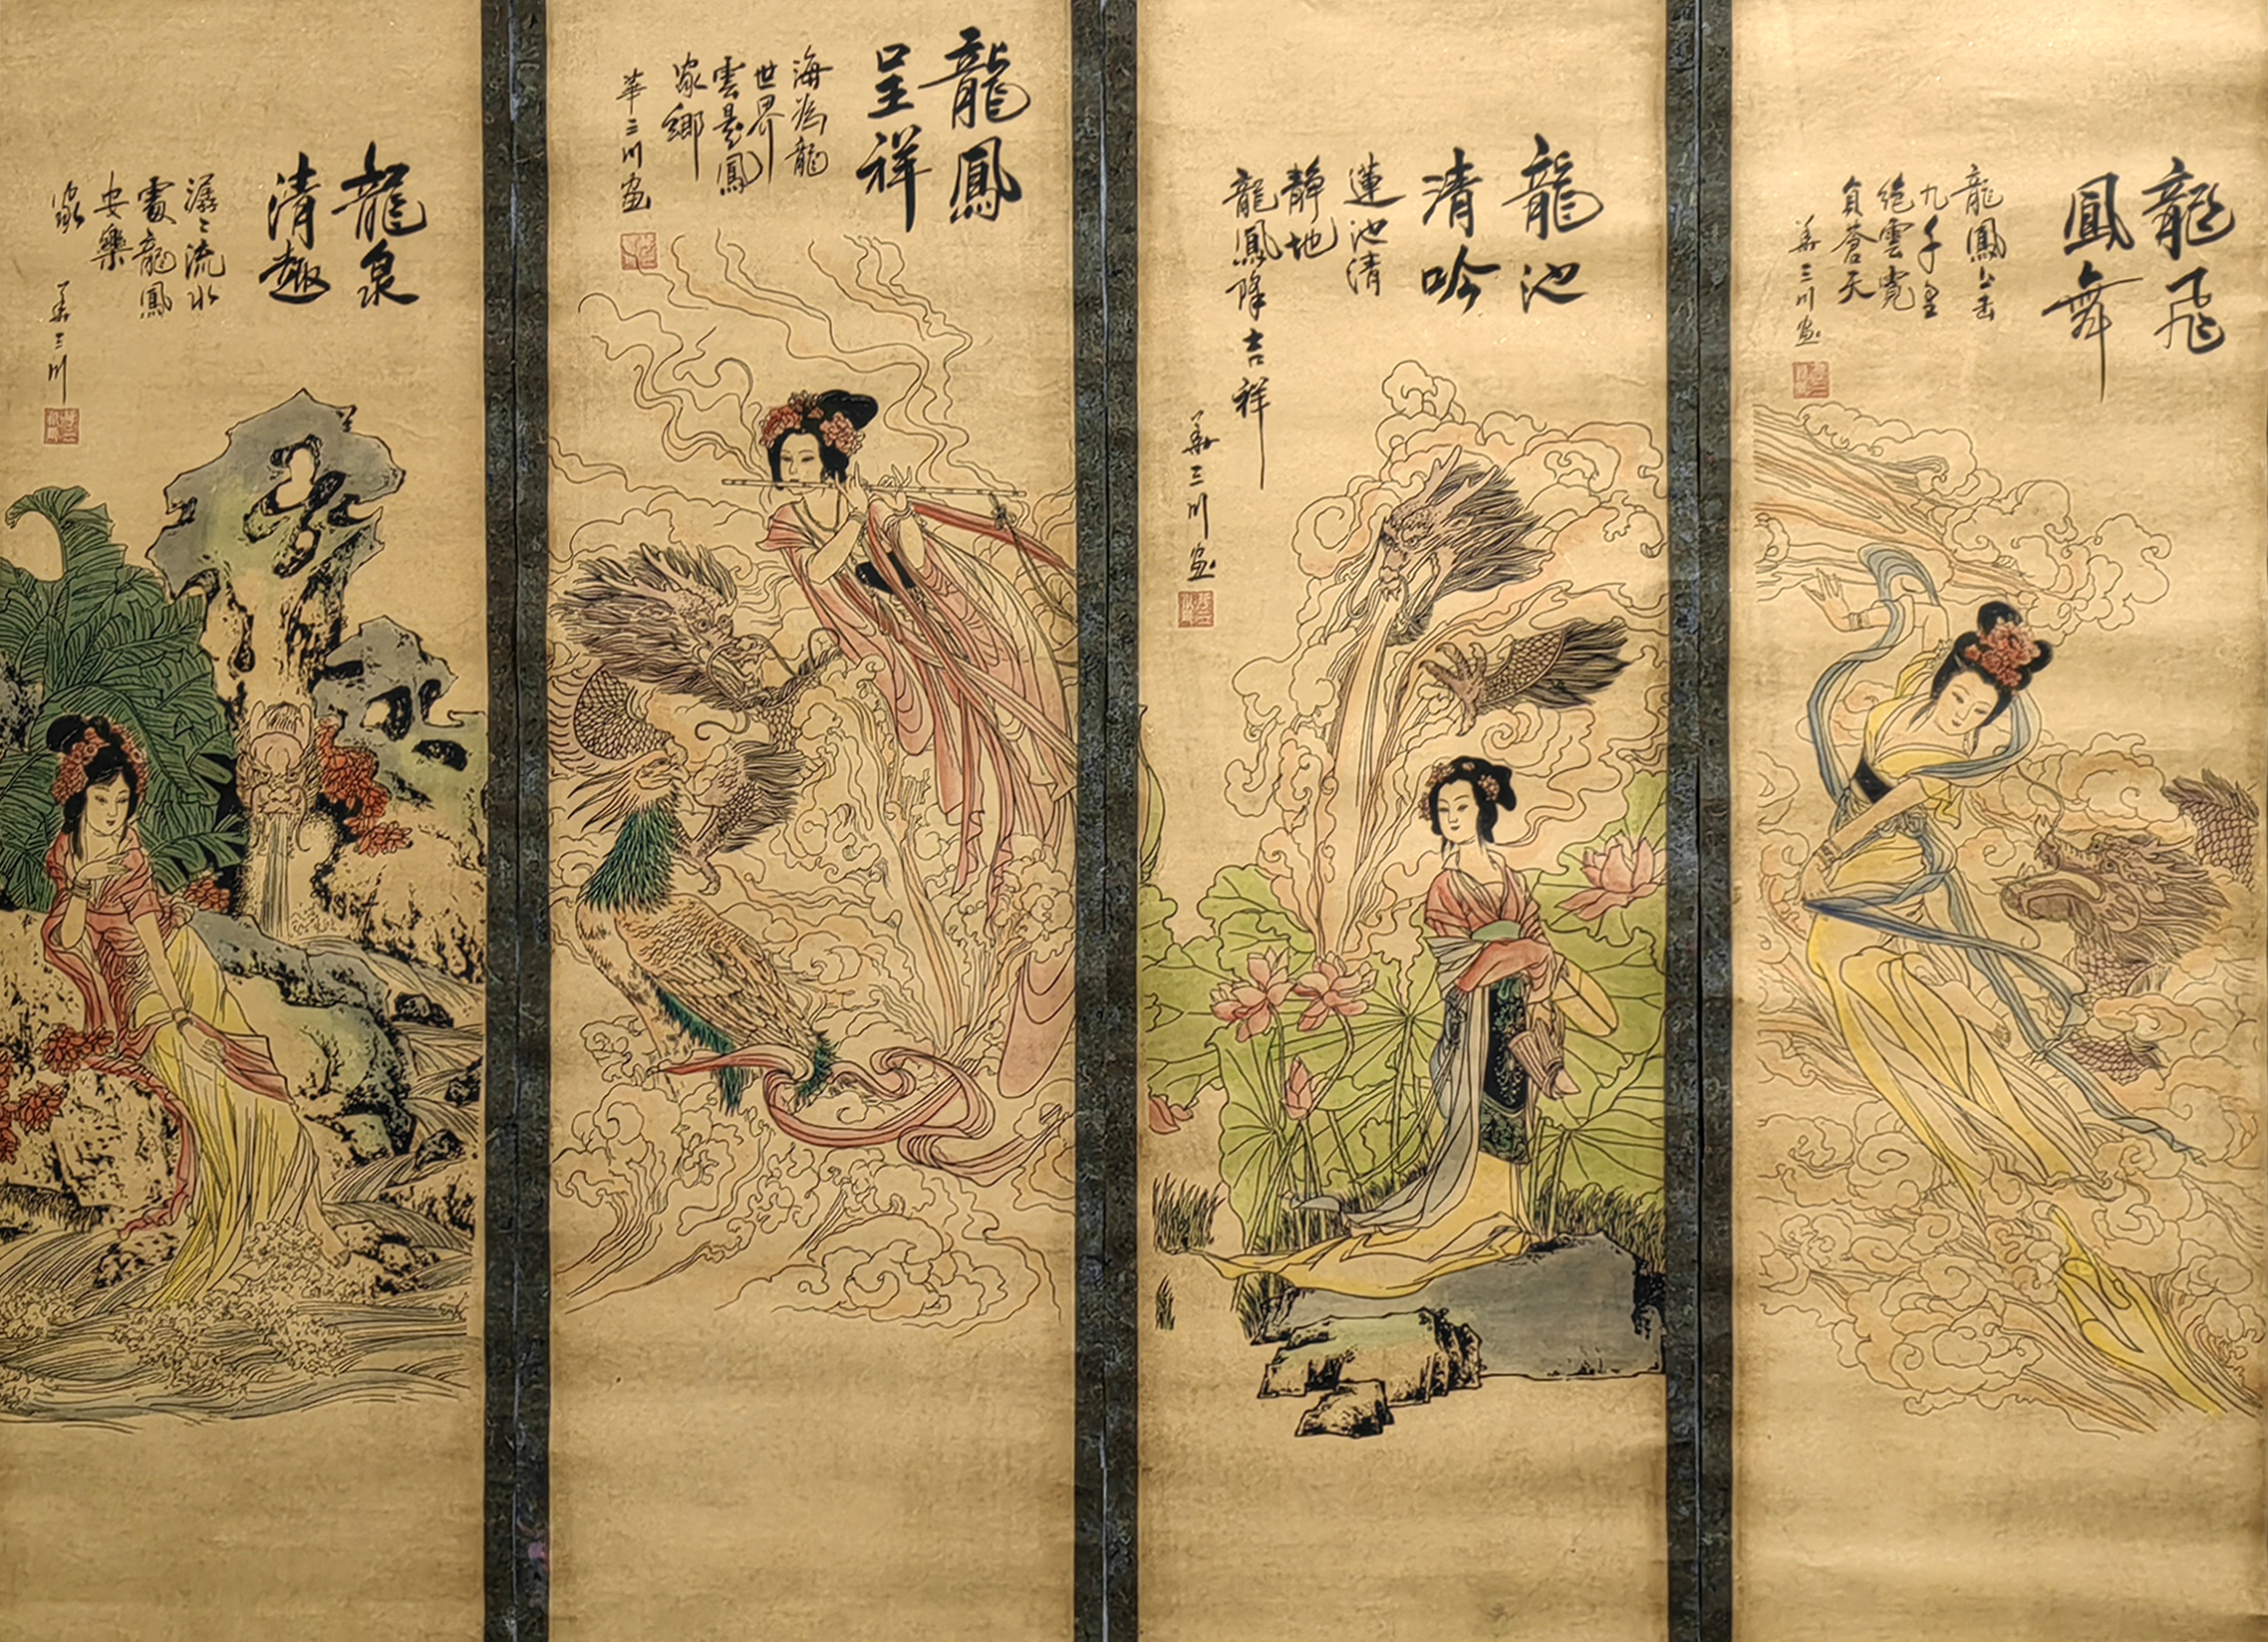 龍飛
鳳舞
龍鳳上击
九千里
绝雲霓
負苍天
華三川画
龍池
清吟
蓮池清
靜地
龍鳳降吉祥
華三川画
龍鳳
呈祥
海为龍
世界
雲是鳳
家鄉
華三川画
龍泉
清趣
潺々流水
處龍鳳
安樂
家
華三川